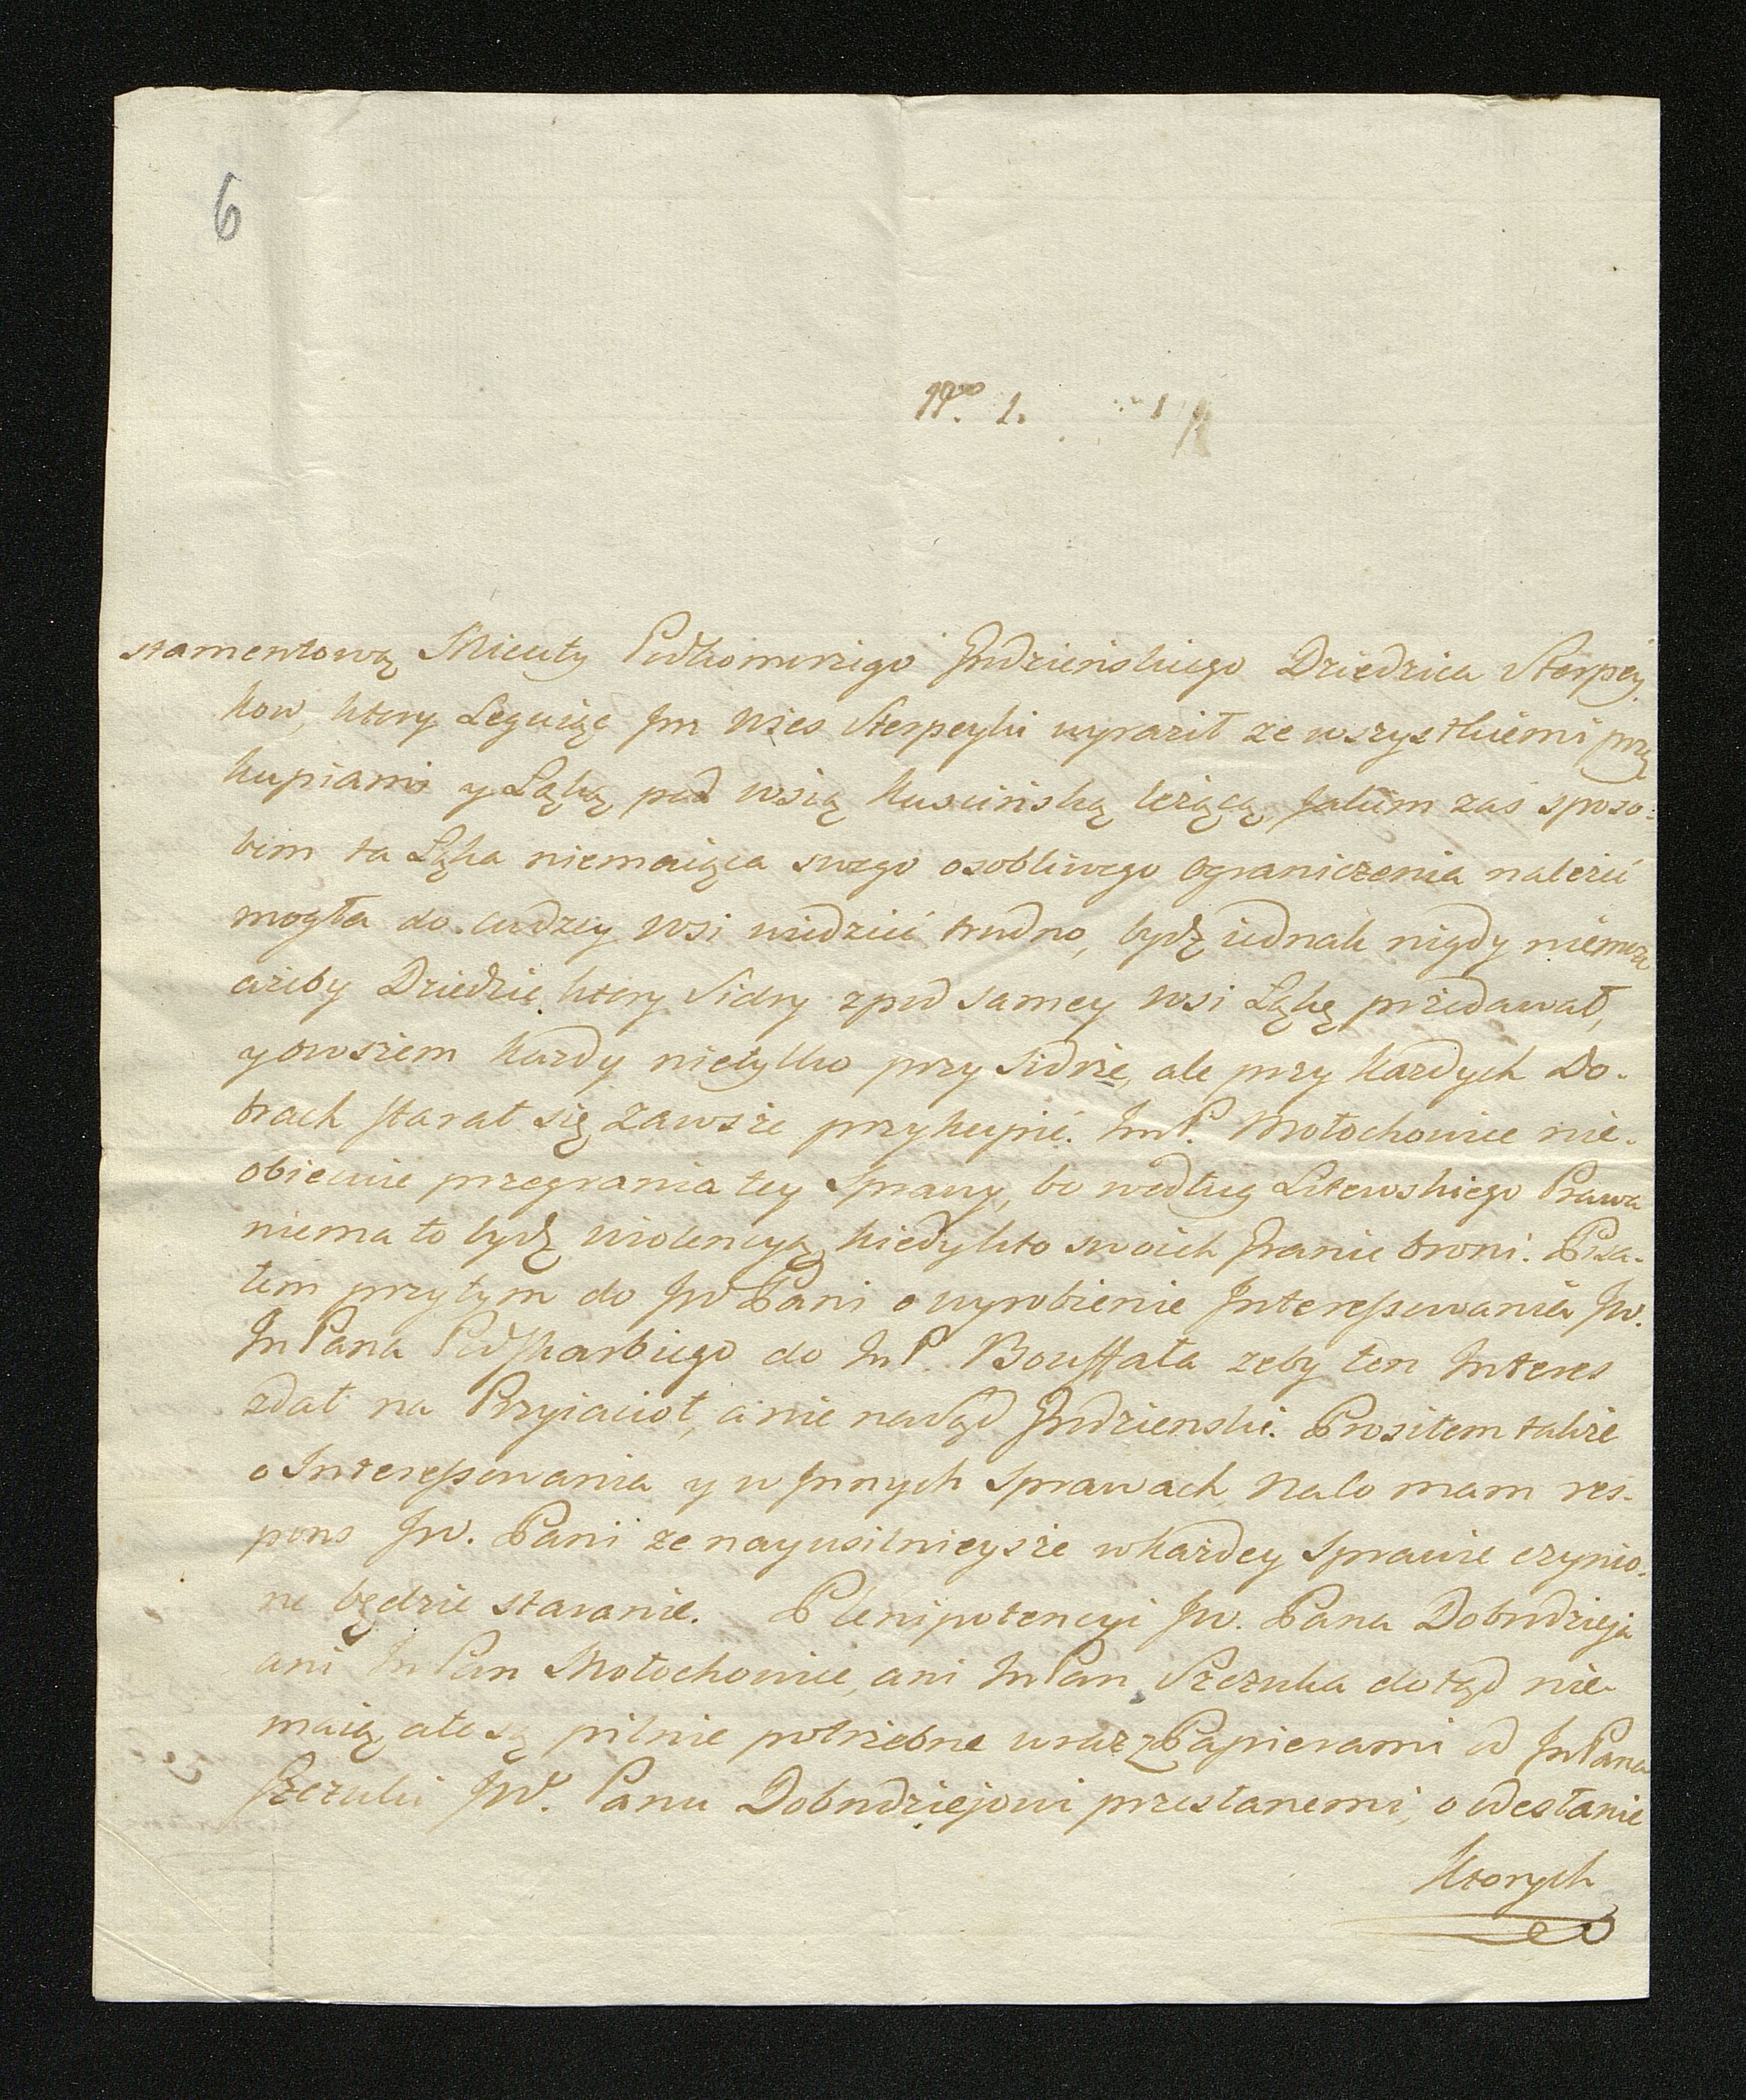 6
Nro. 1.
stamentową Micuty Podkomorzego Grodzieńskiego Dziedzica Sterpey
kow, ktory Legując Jm Wies Sterpeyki wyraził ze wszystkiemi przy
kupiami y Łąką pod wsią Kuscińską leżącą, jakim zaś sposo=
bem ta Łąka niemaiąca swego osobliwego ograniczenia należeć
mogła do cudzey wsi wiedzieć trudno, bydź iednak nigdy niemoże
ażeby Dziedzic ktory Sidry zpod samey wsi Łąkę przedawał,
y owszem każdy nietylko przy Sidrze, ale przy każdych Do-
brach starał się zawsze przykupić. Im P. Mołochowiec nie-
obiecuie przegrania tey sprawy, bo według Litewskiego Prawa
niema to bydź wiolencyą kiedy kto swoich Granic broni. Pisa-
łem przytym do JW Pani o wyrobienie Interessowania JW.
Im Pana Podskarbiego do Im P. Bouffała zeby ten Interes
zdał na Przyiacioł, a nie na Sąd Grodzienski. Prosiłem także
o Interessowania y w Innych sprawach, na co mam res-
pons JW. Pani ze nayusilnieysze w każdey sprawie czynio-
ne będzie staranie. Plenipotencyi JW. Pana Dobrodzieja
ani Im Pan Mołochowiec, ani Im Pan Szczuka dotąd nie-
maią, a te są pilnie potrzebne wraz z Papierami od Im Pana
Szczuki JW. Panu Dobrodziejowi przesłanemi, o odesłanie
Ktorych